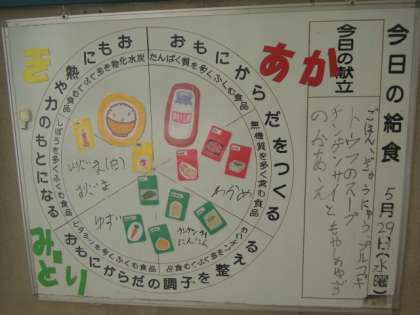 今日の給食
5月29日(水曜)
今日の献立
ごはん ぎゅうにゅう プルコギ
トウフのスープ
チンゲンサイともやしのゆず
のかおあえ
あか
おもにからだをつくる
たんぱく質を多くふくむ食品
無機質を多く含む食品
き
おもに熱や力のもとになる
炭水化物を多くふくむ食品
しぼうを多くふくむ食品
みどり
おもにからだの調子を整える
わかめ
ゆず
チンゲンサイ
にんじん
MILK